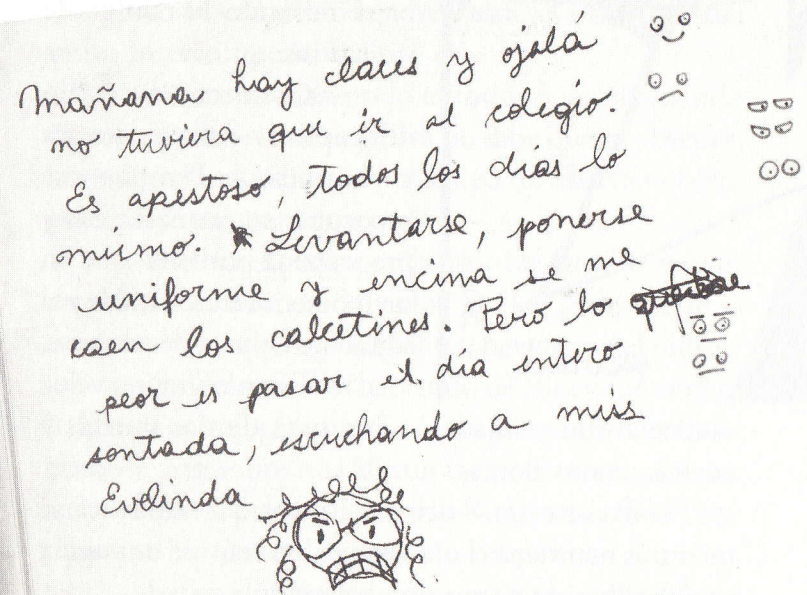 mañana hay clases y ojalá
no tuviera que ir al colegio.
Es apestoso, todos los días lo
mismo. Levantarse, ponerse
uniforme y encima se me
caen los calcetines. Pero lo
peor es pasar el día entero
sentada, escuchando a miss
Evelinda